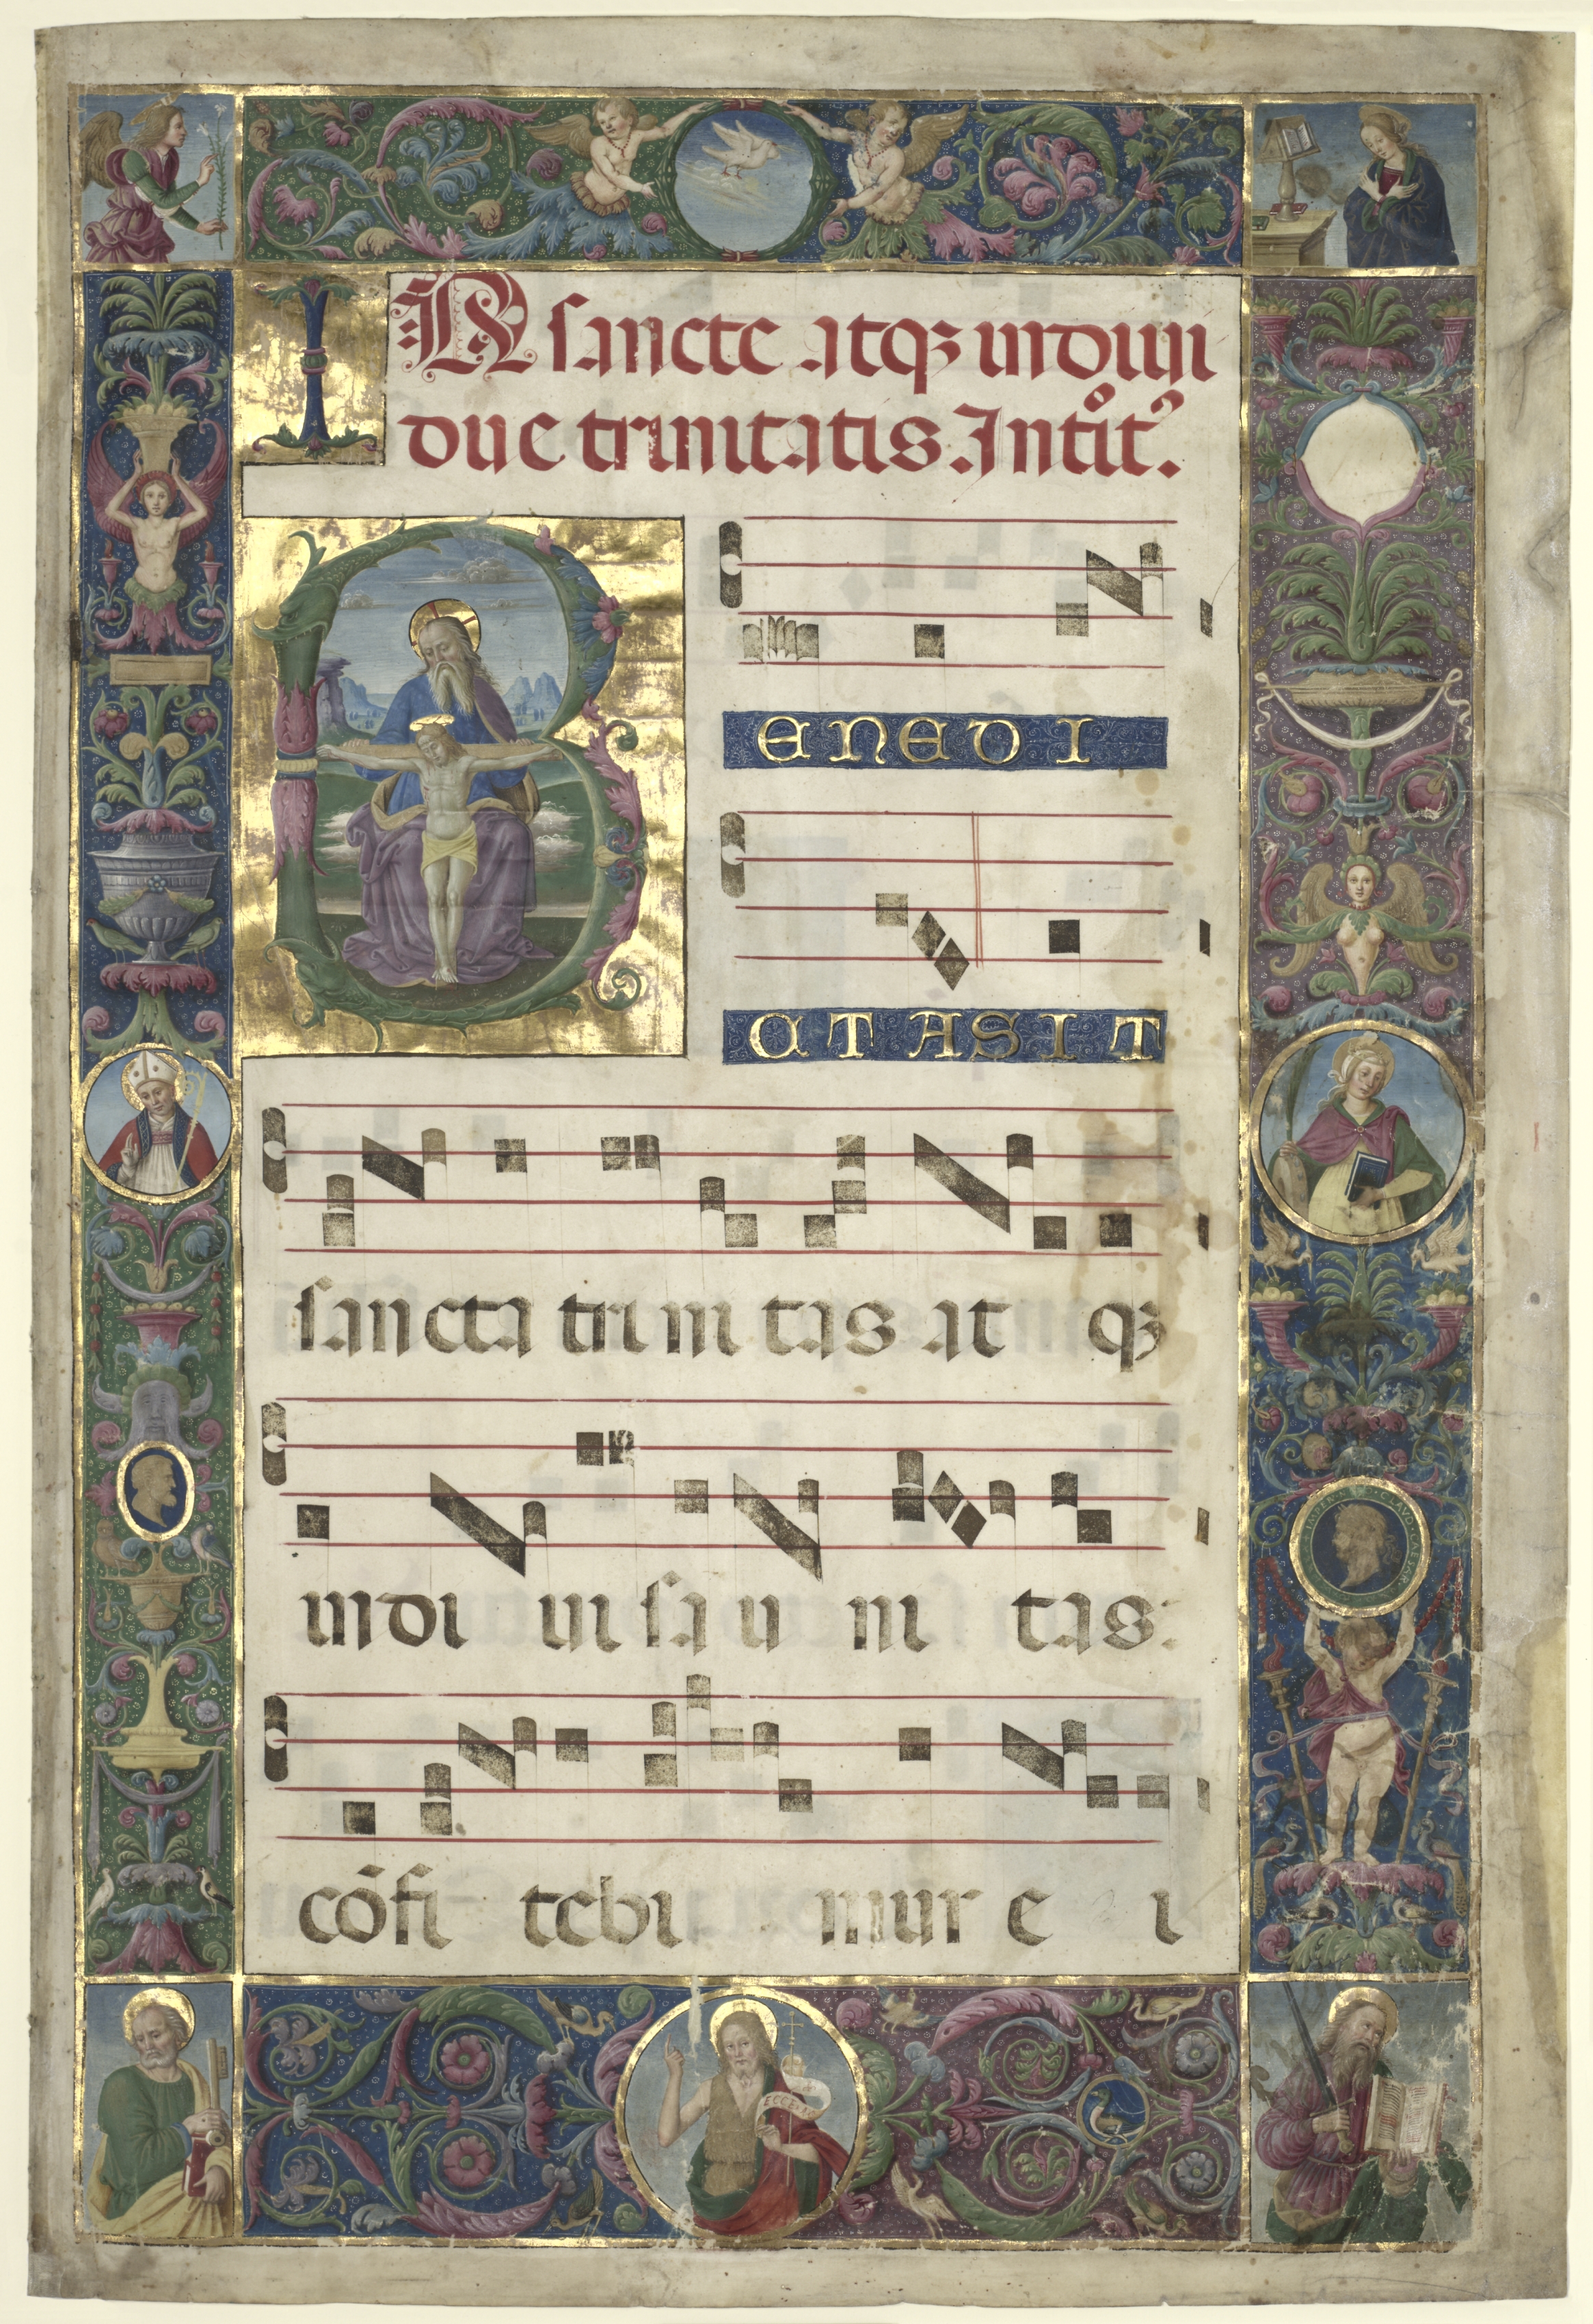 IN sancte atqꝫ indiui
due trinitatis. Intͦitꝰ.
B ENEDI
CTA SIT
sancta tri ni tas at qꝫ
indi ui sa u ni tas:
cōfi tebi mur e i
ECCE